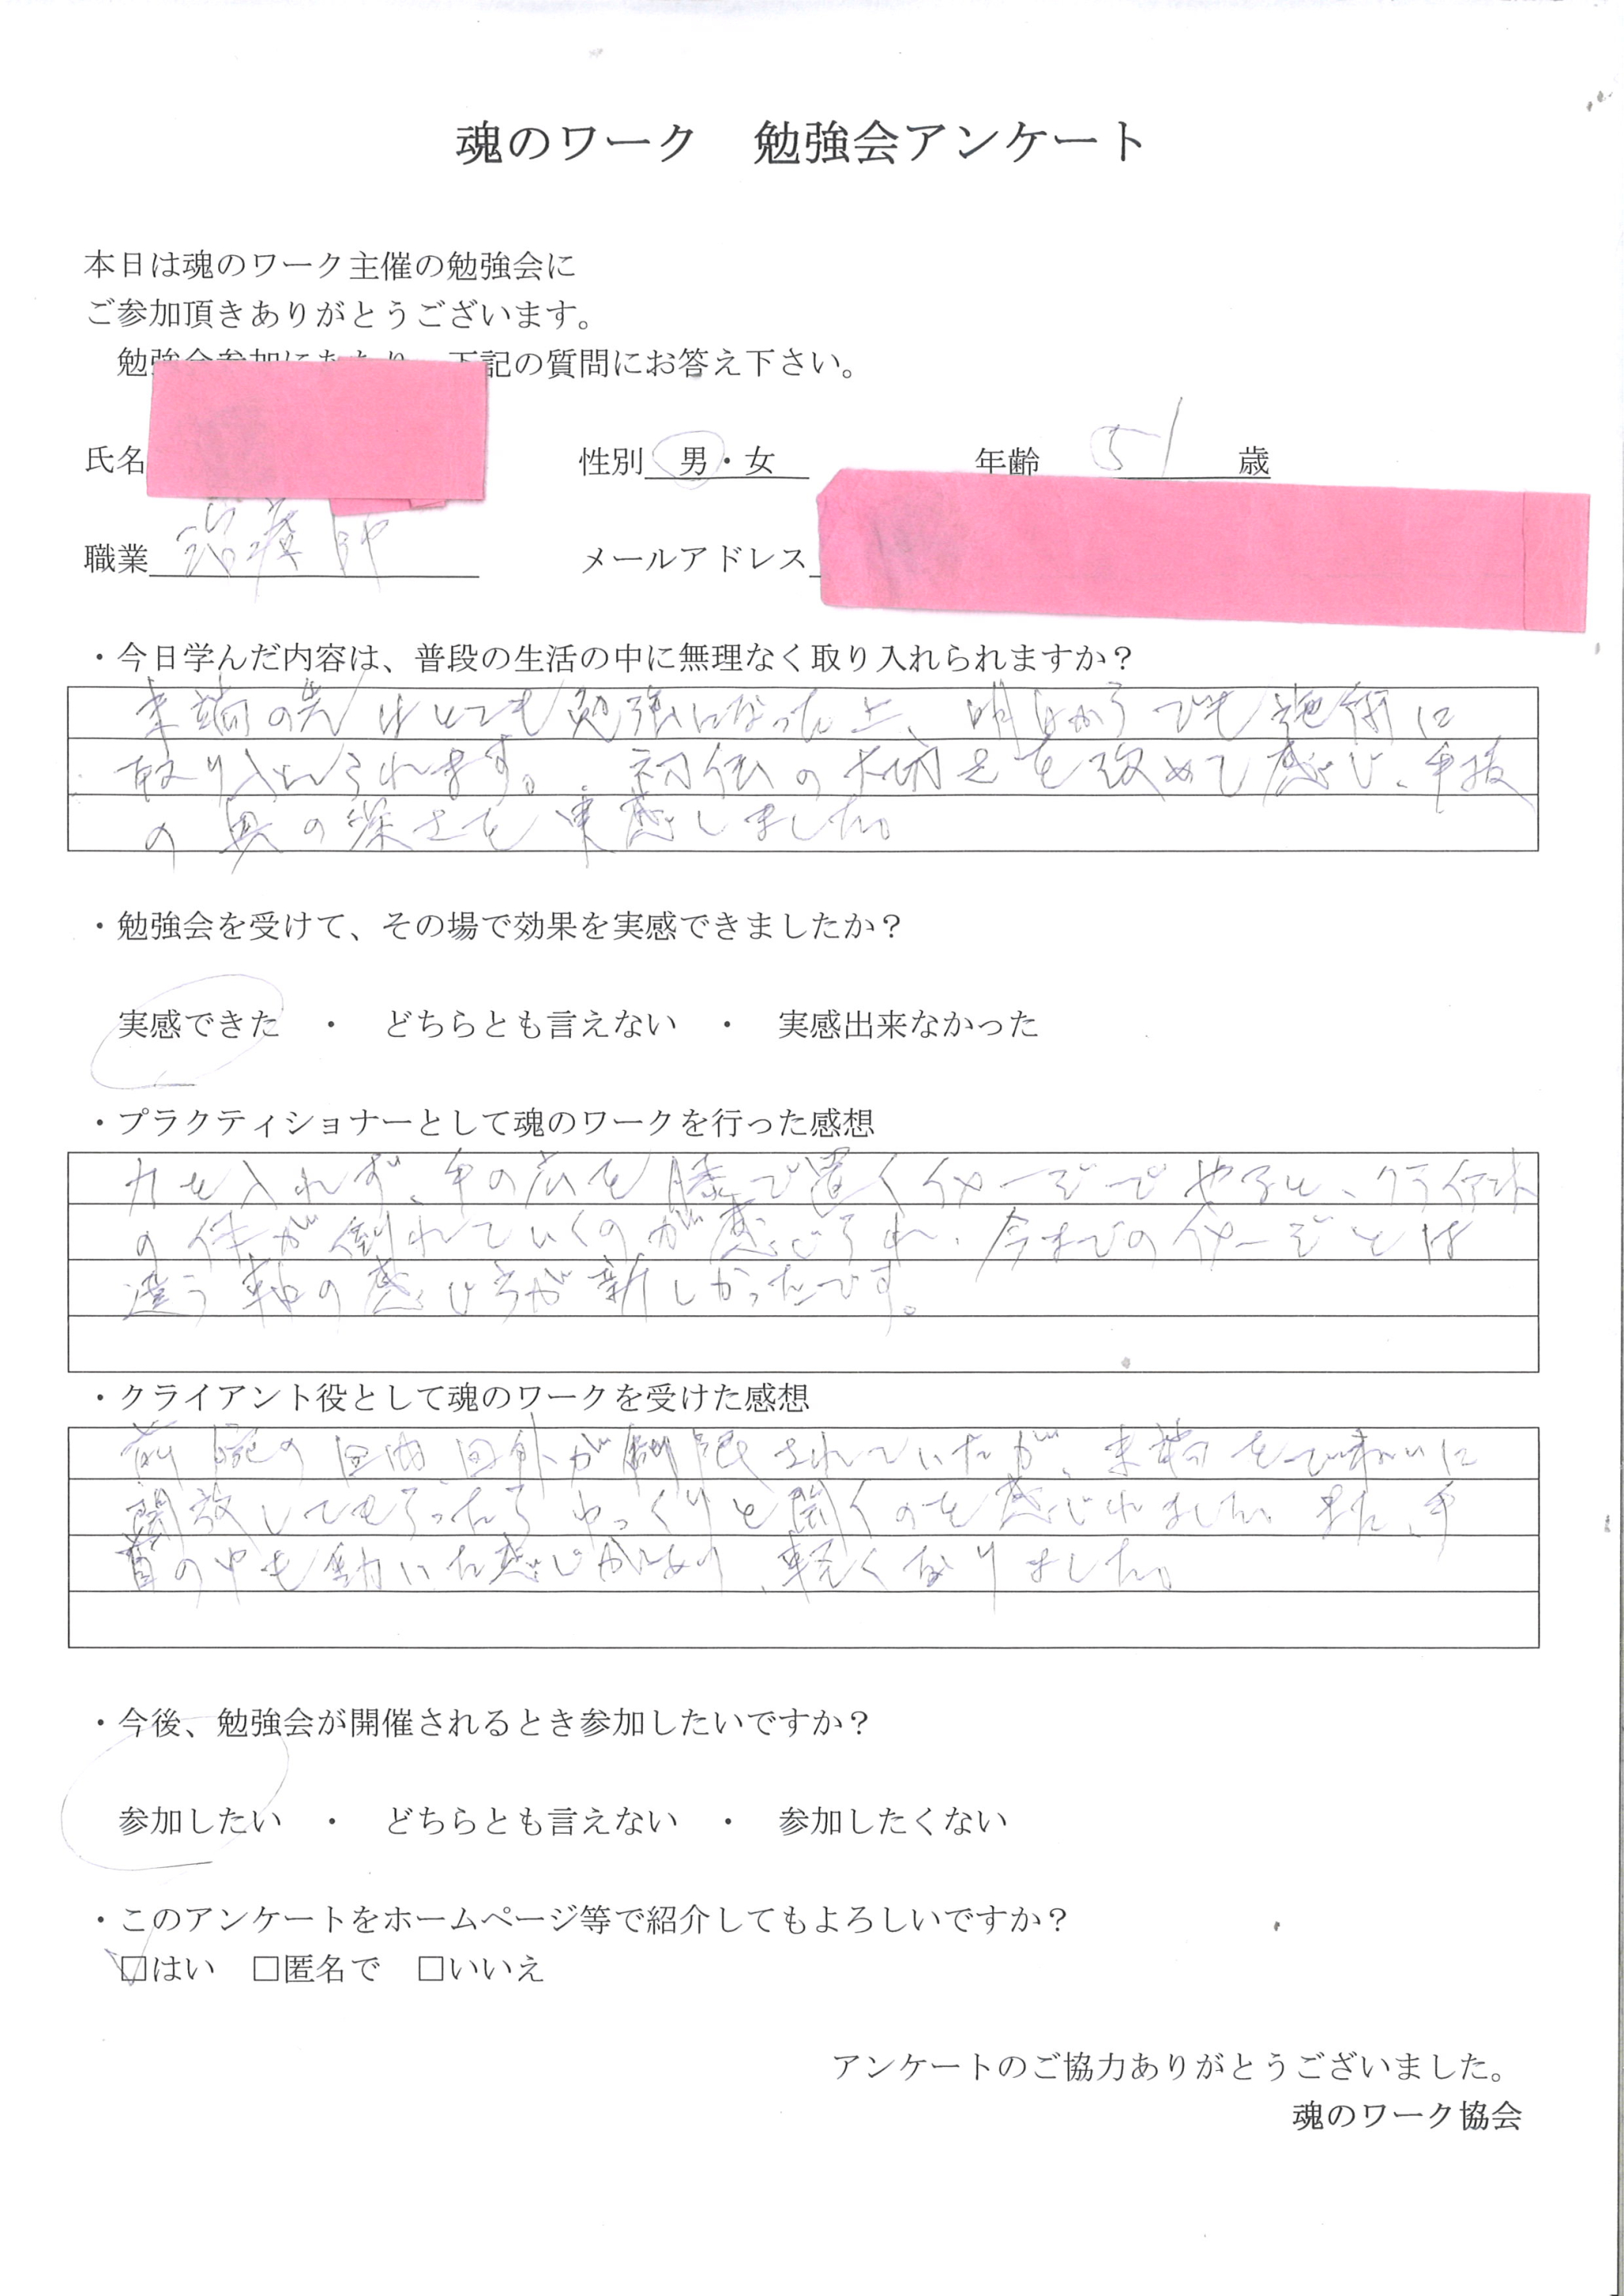 魂のワーク 勉強会アンケート
本日は魂のワーク主催の勉強会に
ご参加頂きありがとうございます。
勉強会参加にあたり、下記の質問にお答え下さい。
氏名 性別 男・女 年齢 51 歳
職業 治療師 メールアドレス
・今日学んだ内容は、普段の生活の中に無理なく取り入れられますか？
末端の先はとても勉強になった上、明日からでも施術に
取り入れられます。初伝の大切さを改めて感じ、手技
の奥の深さを実感しました。
・勉強会を受けて、その場で効果を実感できましたか？
実感できた ・ どちらとも言えない ・ 実感出来なかった
・プラクティショナーとして魂のワークを行った感想
力を入れず、手の広を膝で置くイメージでやると、クライアント
の体が倒れていくのが感じられ、今までのイメージとは
違う軸の感じ方が新しかったです。
・クライアント役として魂のワークを受けた感想
前腕の回内、回外が制限されていたが、末端をていねいに
開放してもらったらゆっくりと開くのを感じれました。また、手
首の中も動いた感じがあり、軽くなりました。
・今後、勉強会が開催されるとき参加したいですか？
参加したい ・ どちらとも言えない ・ 参加したくない
・このアンケートをホームページ等で紹介してもよろしいですか？
□はい □匿名で □いいえ
アンケートのご協力ありがとうございました。
魂のワーク協会